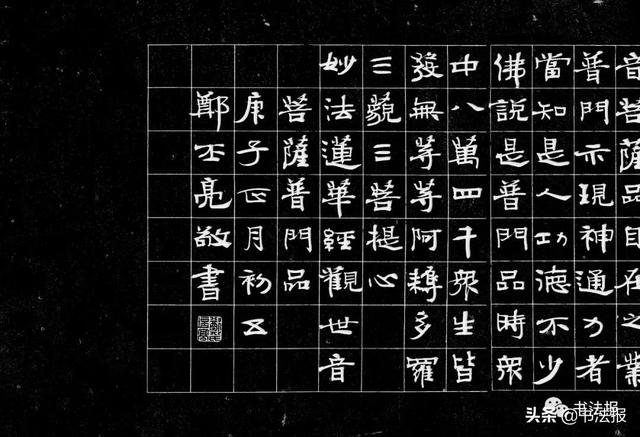 音菩薩品自在之業
普門示現神通力者
當知是人功德不少
佛說是普門品時眾
中八萬四千眾生皆
發無等等阿耨多羅
三藐三菩提心
妙法蓮華經觀世音
菩薩普門品
庚子正月初五
鄭丕亮敬書
书法报
头条 @书法报